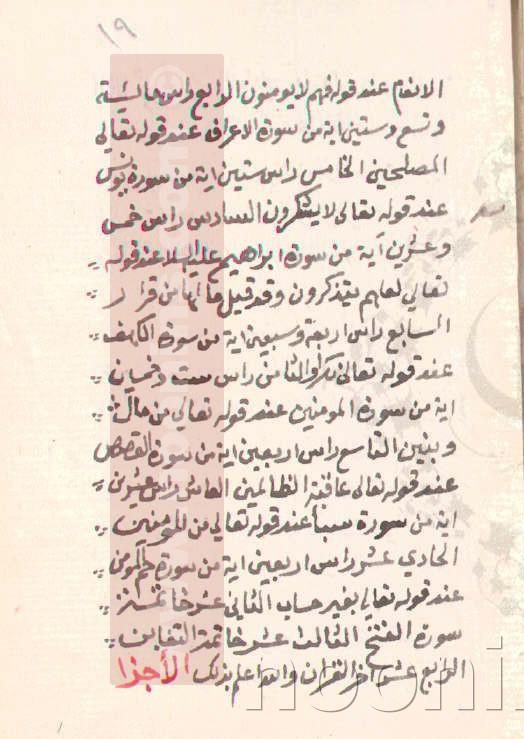 ١٩
الانعام عند قوله فهم لا يومنون الرابع راس مايئة
وتسع وستين اية من سورة الاعراف عند قوله تعالي
المصلحين الخامس راس ستين اية من سورة يونس
عند قوله تعالى لا يشكرون السادس راس خمس
وعشرين آية من سورة ابراهيم عليه السلام عند قوله
تعالي لعلهم يتذكرون وقد قيل مالها من قرار
السابع راس اربعة وسبعين اية من سورة الكهف
عند قوله تعالى نكرا والثامن راس ست وخمسين
اية من سورة المومنين عند قوله تعالي من مال
وبنين التاسع راس اربعين اية من سورة القصص
عند قوله تعالى عاقبة الظالمين العاشر راس عشرين
اية من سورة سبأ عند قوله تعالي من المومنين
الحادي عشر راس اربعين اية من سورة حم المومن
عند قوله تعالي بغير حساب الثاني عشر خاتمة
سورة الفتح الثالث عشر خاتمة التغابن
الرابع عشر اخر القران والله اعلم بذلك الأجزا
noorli